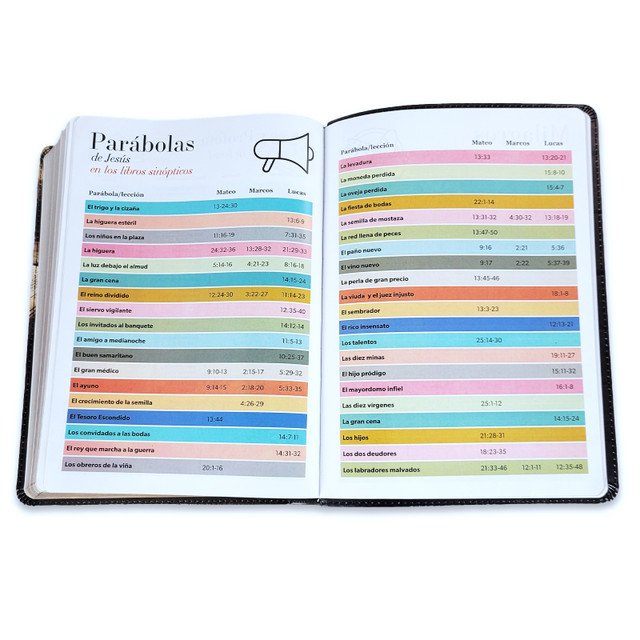 Parábolas
de Jesús
en los libros sinópticos
Parábola/lección Mateo Marcos Lucas
El trigo y la cizaña 13-24:30
La higuera estéril 13:6-9
Los niños en la plaza 11:16-19 7:31-35
La higuera 24:32-36 13:28-32 21:29-33
La luz debajo el almud 5:14-16 4:21-23 8:16-18
La gran cena 14:15-24
El reino dividido 12:24-30 3:22-27 11:14-23
El siervo vigilante 12:35-40
Los invitados al banquete 14:12-14
El amigo a medianoche 11:5-13
El buen samaritano 10:25-37
El gran médico 9:10-13 2:15-17 5:29-32
El ayuno 9:14-15 2:18-20 5:33-35
El crecimiento de la semilla 4:26-29
El Tesoro Escondido 13:44
Los convidados a las bodas 14:7-11
El rey que marcha a la guerra 14:31-32
Los obreros de la viña 20:1-16
Parábola/lección Mateo Marcos Lucas
La levadura 13:33 13:20-21
La moneda perdida 15:8-10
La oveja perdida 15:4-7
La fiesta de bodas 22:1-14
La semilla de mostaza 13:31-32 4:30-32 13:18-19
La red llena de peces 13:47-50
El paño nuevo 9:16 2:21 5:36
El vino nuevo 9:17 2:22 5:37-39
La perla de gran precio 13:45-46
La viuda y el juez injusto 18:1-8
El sembrador 13:3-23
El rico insensato 12:13-21
Los talentos 25:14-30
Las diez minas 19:11-27
El hijo pródigo 15:11-32
El mayordomo infiel 16:1-8
Las diez vírgenes 25:1-12
La gran cena 14:15-24
Los hijos 21:28-31
Los dos deudores 18:23-35
Los labradores malvados 21:33-46 12:1-11 12:35-48